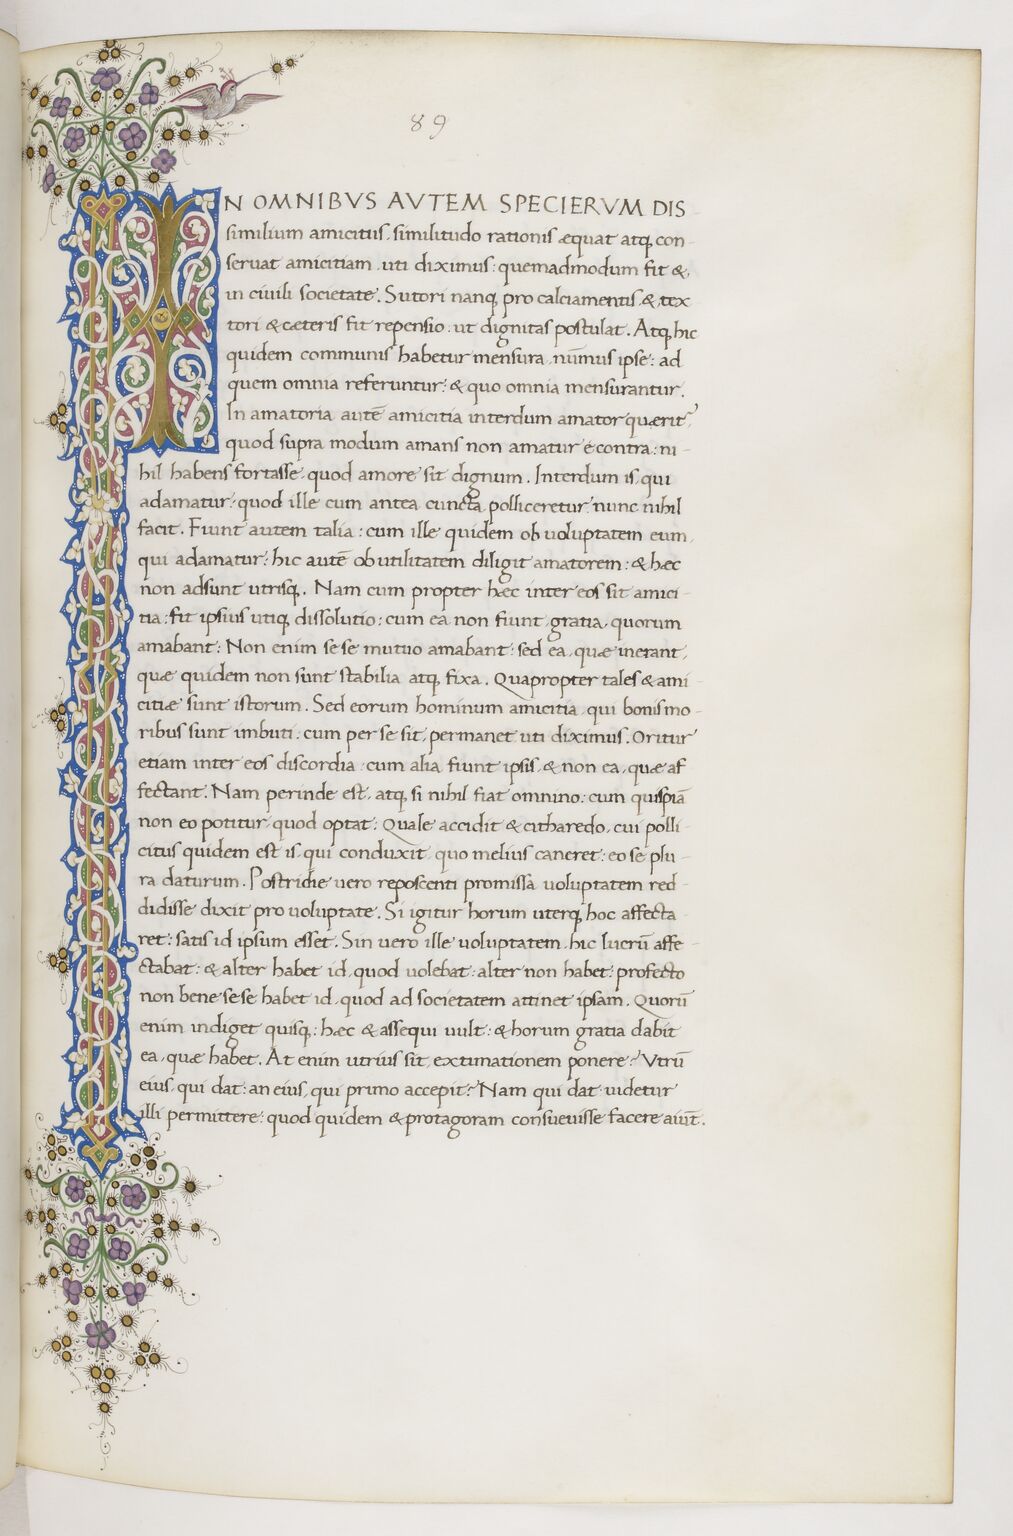 89
IN OMNIBVS AVTEM SPECIERVM DIS
similium amicitiis, similitudo rationis æquat atq; con-
seruat amicitiam, uti diximus: quemadmodum fit &,
in ciuili societate. Sutori nanq; pro calciamentis, & tex-
tori & cæteris fit repensio, ut dignitas postulat. Atq; hic
quidem communis habetur mensura, nūmus ipse: ad
quem omnia referuntur: & quo omnia mensurantur.
In amatoria autē amicitia interdum amator quærit,
quod supra modum amans non amatur ècontra: ni-
hil habens fortasse, quod amore sit dignum. Interdum is, qui
adamatur: quod ille cum antea cuncta polliceretur, nunc nihil
facit. Fiunt autem talia: cum ille quidem ob uoluptatem eum,
qui adamatur: hic autē ob utilitatem diligit amatorem: & hæc
non adsunt utrisq;. Nam cum propter hæc inter eos sit amici-
tia: fit ipsius utiq; dissolutio: cum ea non fiunt, gratia, quorum
amabant: Non enim se se mutuo amabant: sed ea, quæ inerant,
quæ quidem non sunt stabilia atq; fixa. Quapropter tales & ami-
citiæ sunt istorum. Sed eorum hominum amicitia, qui bonis mo-
ribus sunt imbuti: cum per se sit, permanet uti diximus. Oritur
etiam inter eos discordia: cum alia fiunt ipsis, & non ea, quæ af-
fectant. Nam perinde est, atq; si nihil fiat omnino: cum quispiā
non eo potitur, quod optat: Quale accidit & citharedo, cui polli-
citus quidem est is, qui conduxit, quo melius caneret: eo se plu-
ra daturum. Postridie uero reposcenti promissa uoluptatem red-
didisse dixit pro uoluptate. Si igitur horum uterq; hoc affecta-
ret: satis id ipsum esset. Sin uero ille uoluptatem, hic lucrū affe-
ctabat: & alter habet id, quod uolebat: alter non habet: profecto
non bene se se habet id, quod ad societatem attinet ipsam. Quorū
enim indiget quisq;: hæc & assequi uult: & horum gratia dabit
ea, quæ habet. At enim utrius sit, extimationem ponere? Vtrū
eius, qui dat: an eius, qui primo accepit? Nam qui dat uidetur
illi permittere: quod quidem & protagoram consueuisse facere aiūt.